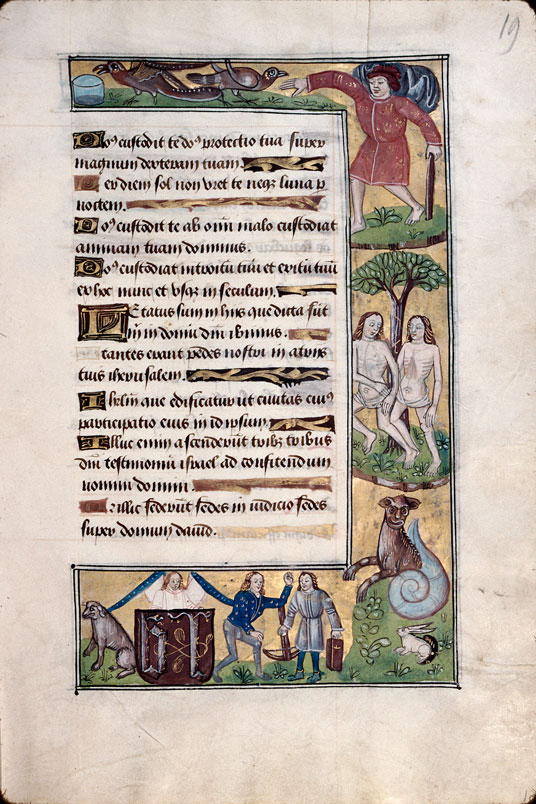 19
Dn̄s custodit te dn̄s protectio tua super
manum dexteram tuam
Per diem sol non vret te neqz luna p
noctem.
Dn̄s custodit te ab om̄i malo custodiat
animam tuam dominus.
Dn̄s custodiat introitū tuū et exitū tuū
ex hoc nunc et vsqz in seculum.
Letatus sum in hiis que dicta sūt
m̄ in domū dn̄i ibimus.
Stantes erant pedes nostri in atriis
tuis iherusalem.
Ihrl̄m que edificatur ut ciuitas cuiꝰ
participatio eius in idipsum.
Illuc enim ascenderūt tribꝫ tribus
dn̄i testimoniū israel ad confitendum
nomini domini.
Quia illuc sederūt sedes in iudicio sedes
super domum dauid.